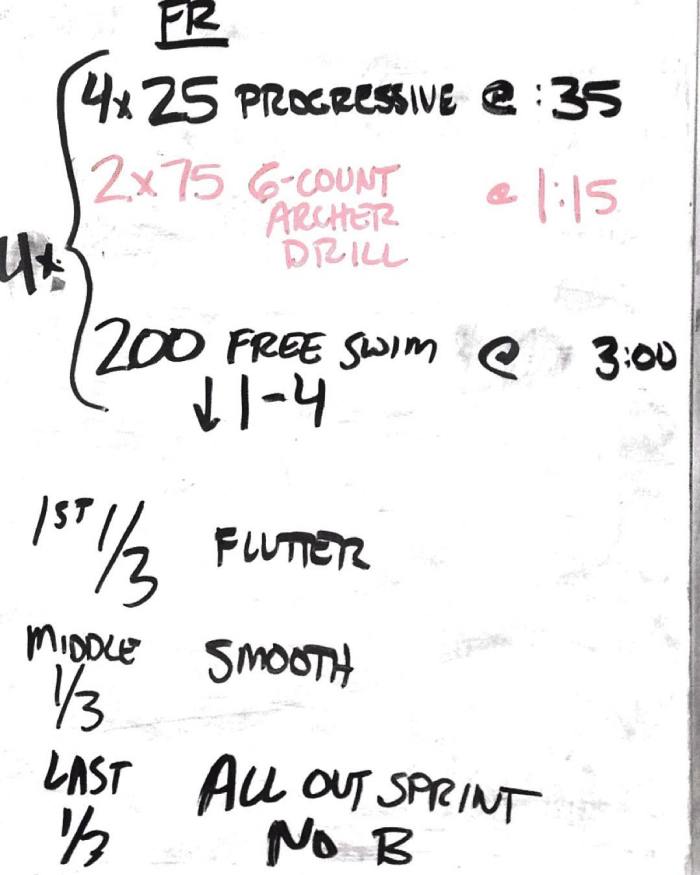 FR
4x 25 PROGRESSIVE @ :35
2x75 6-COUNT @ 1:15
ARCHER
DRILL
4x
200 FREE SWIM @ 3:00
↓ 1-4
1ST 1/3 FLUTTER
MIDDLE SMOOTH
1/3
LAST ALL OUT SPRINT
1/3 NO B